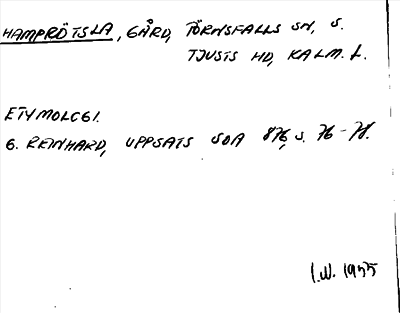 HAMPRÖTSLA, GÅRD, TÖRNSFALLS SN, S.
TJUSTS HD, KALM. L.
ETYMOLOGI.
G. REINHARD, UPPSATS SOA 876, S. 76-78.
I.W. 1955